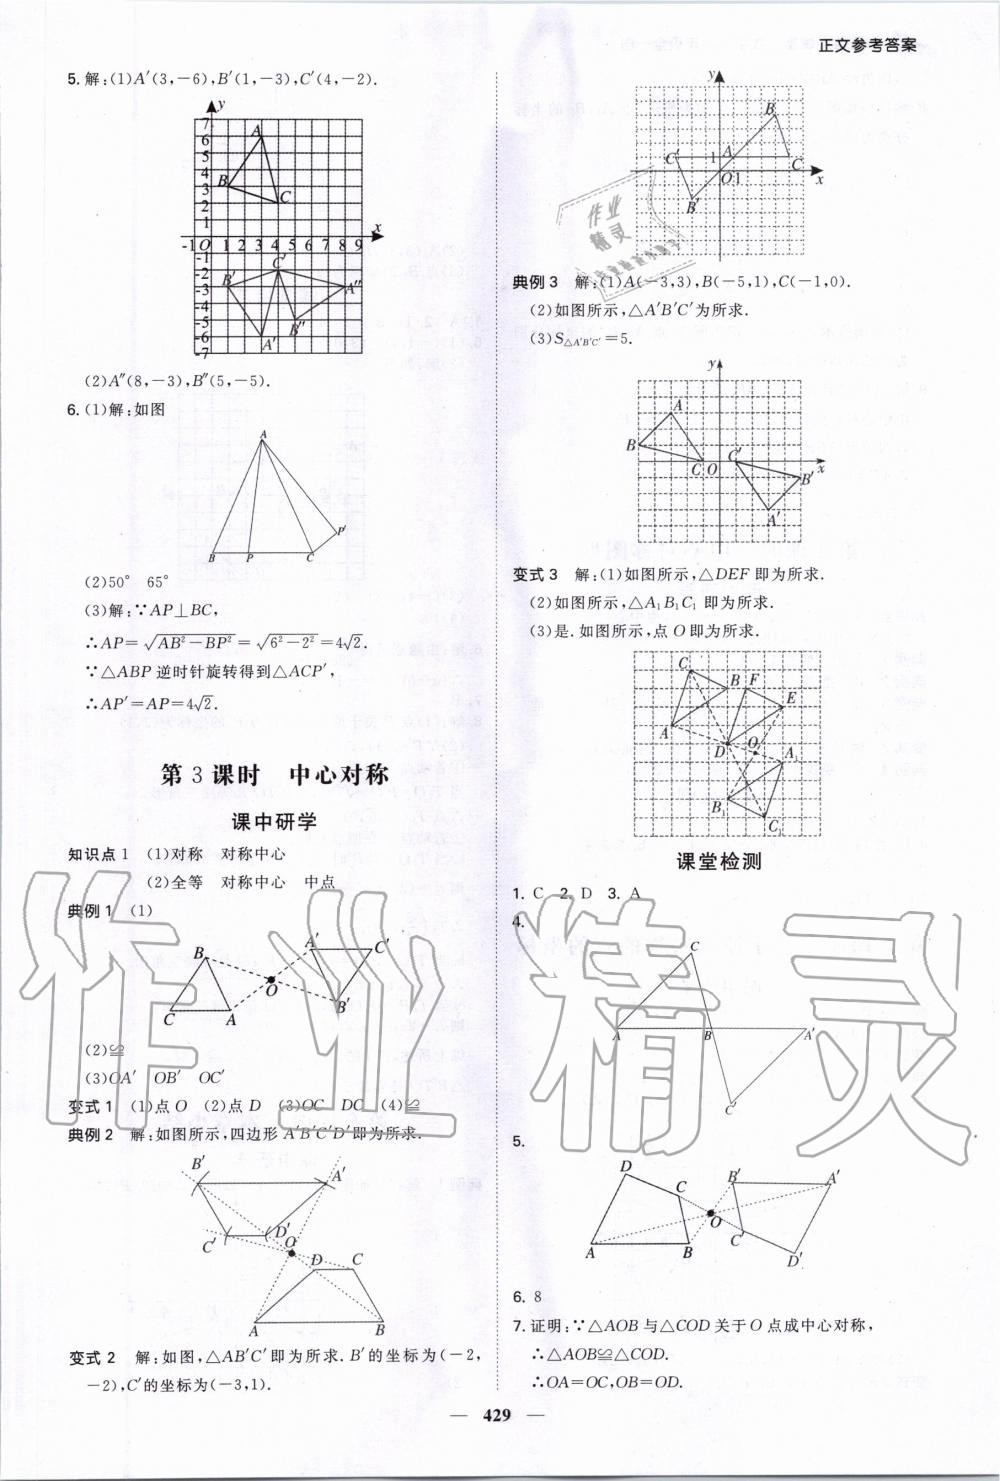 正文参考答案
5.解:(1)A′(3,-6),B′(1,-3),C′(4,-2).
(2)A″(8,-3),B″(5,-5).
6.(1)解:如图
(2)50° 65°
(3)解:∵AP⊥BC,
∴AP=√(AB²-BP²)=√(6²-2²)=4√2.
∵△ABP 逆时针旋转得到△ACP′,
∴AP′=AP=4√2.
第3课时 中心对称
课中研学
知识点1 (1)对称 对称中心
(2)全等 对称中心 中点
典例1 (1)
(2)≌
(3)OA′ OB′ OC′
变式1 (1)点O (2)点D (3)OC DC (4)≌
典例2 解:如图所示,四边形 A′B′C′D′即为所求.
变式2 解:如图,△AB′C′即为所求.B′的坐标为(-2,
-2),C′的坐标为(-3,1).
典例3 解:(1)A(-3,3),B(-5,1),C(-1,0).
(2)如图所示,△A′B′C′为所求.
(3)S△A′B′C′=5.
变式3 解:(1)如图所示,△DEF 即为所求.
(2)如图所示,△A₁B₁C₁ 即为所求.
(3)是.如图所示,点O即为所求.
课堂检测
1. C 2. D 3. A
4.
5.
6. 8
7.证明:∵△AOB 与△COD 关于 O 点成中心对称,
∴△AOB≌△COD.
∴OA=OC,OB=OD.
— 429 —
作业精灵